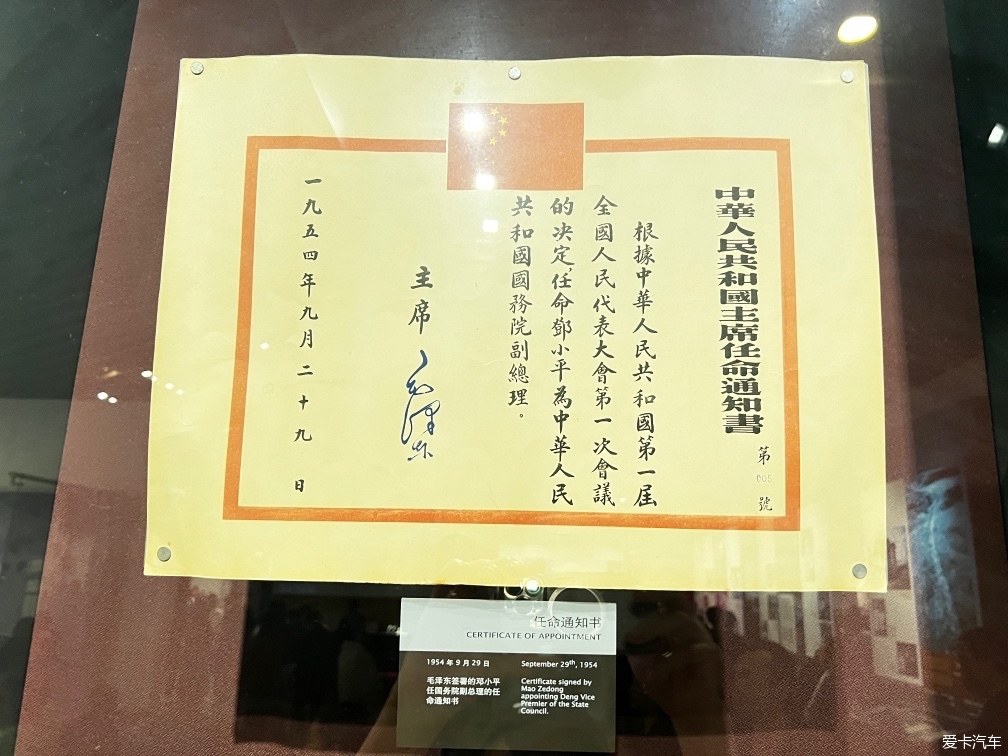 中華人民共和國主席任命通知書
第005號
根據中華人民共和國第一屆
全國人民代表大會第一次會議
的决定，任命鄧小平為中華人民
共和國國務院副總理。
主席 毛澤东
一九五四年九月二十九日
任命通知书
CERTIFICATE OF APPOINTMENT
1954 年 9 月 29 日
毛泽东签署的邓小平
任国务院副总理的任
命通知书
September 29th, 1954
Certificate signed by
Mao Zedong
appointing Deng Vice
Premier of the State
Council.
爱卡汽车